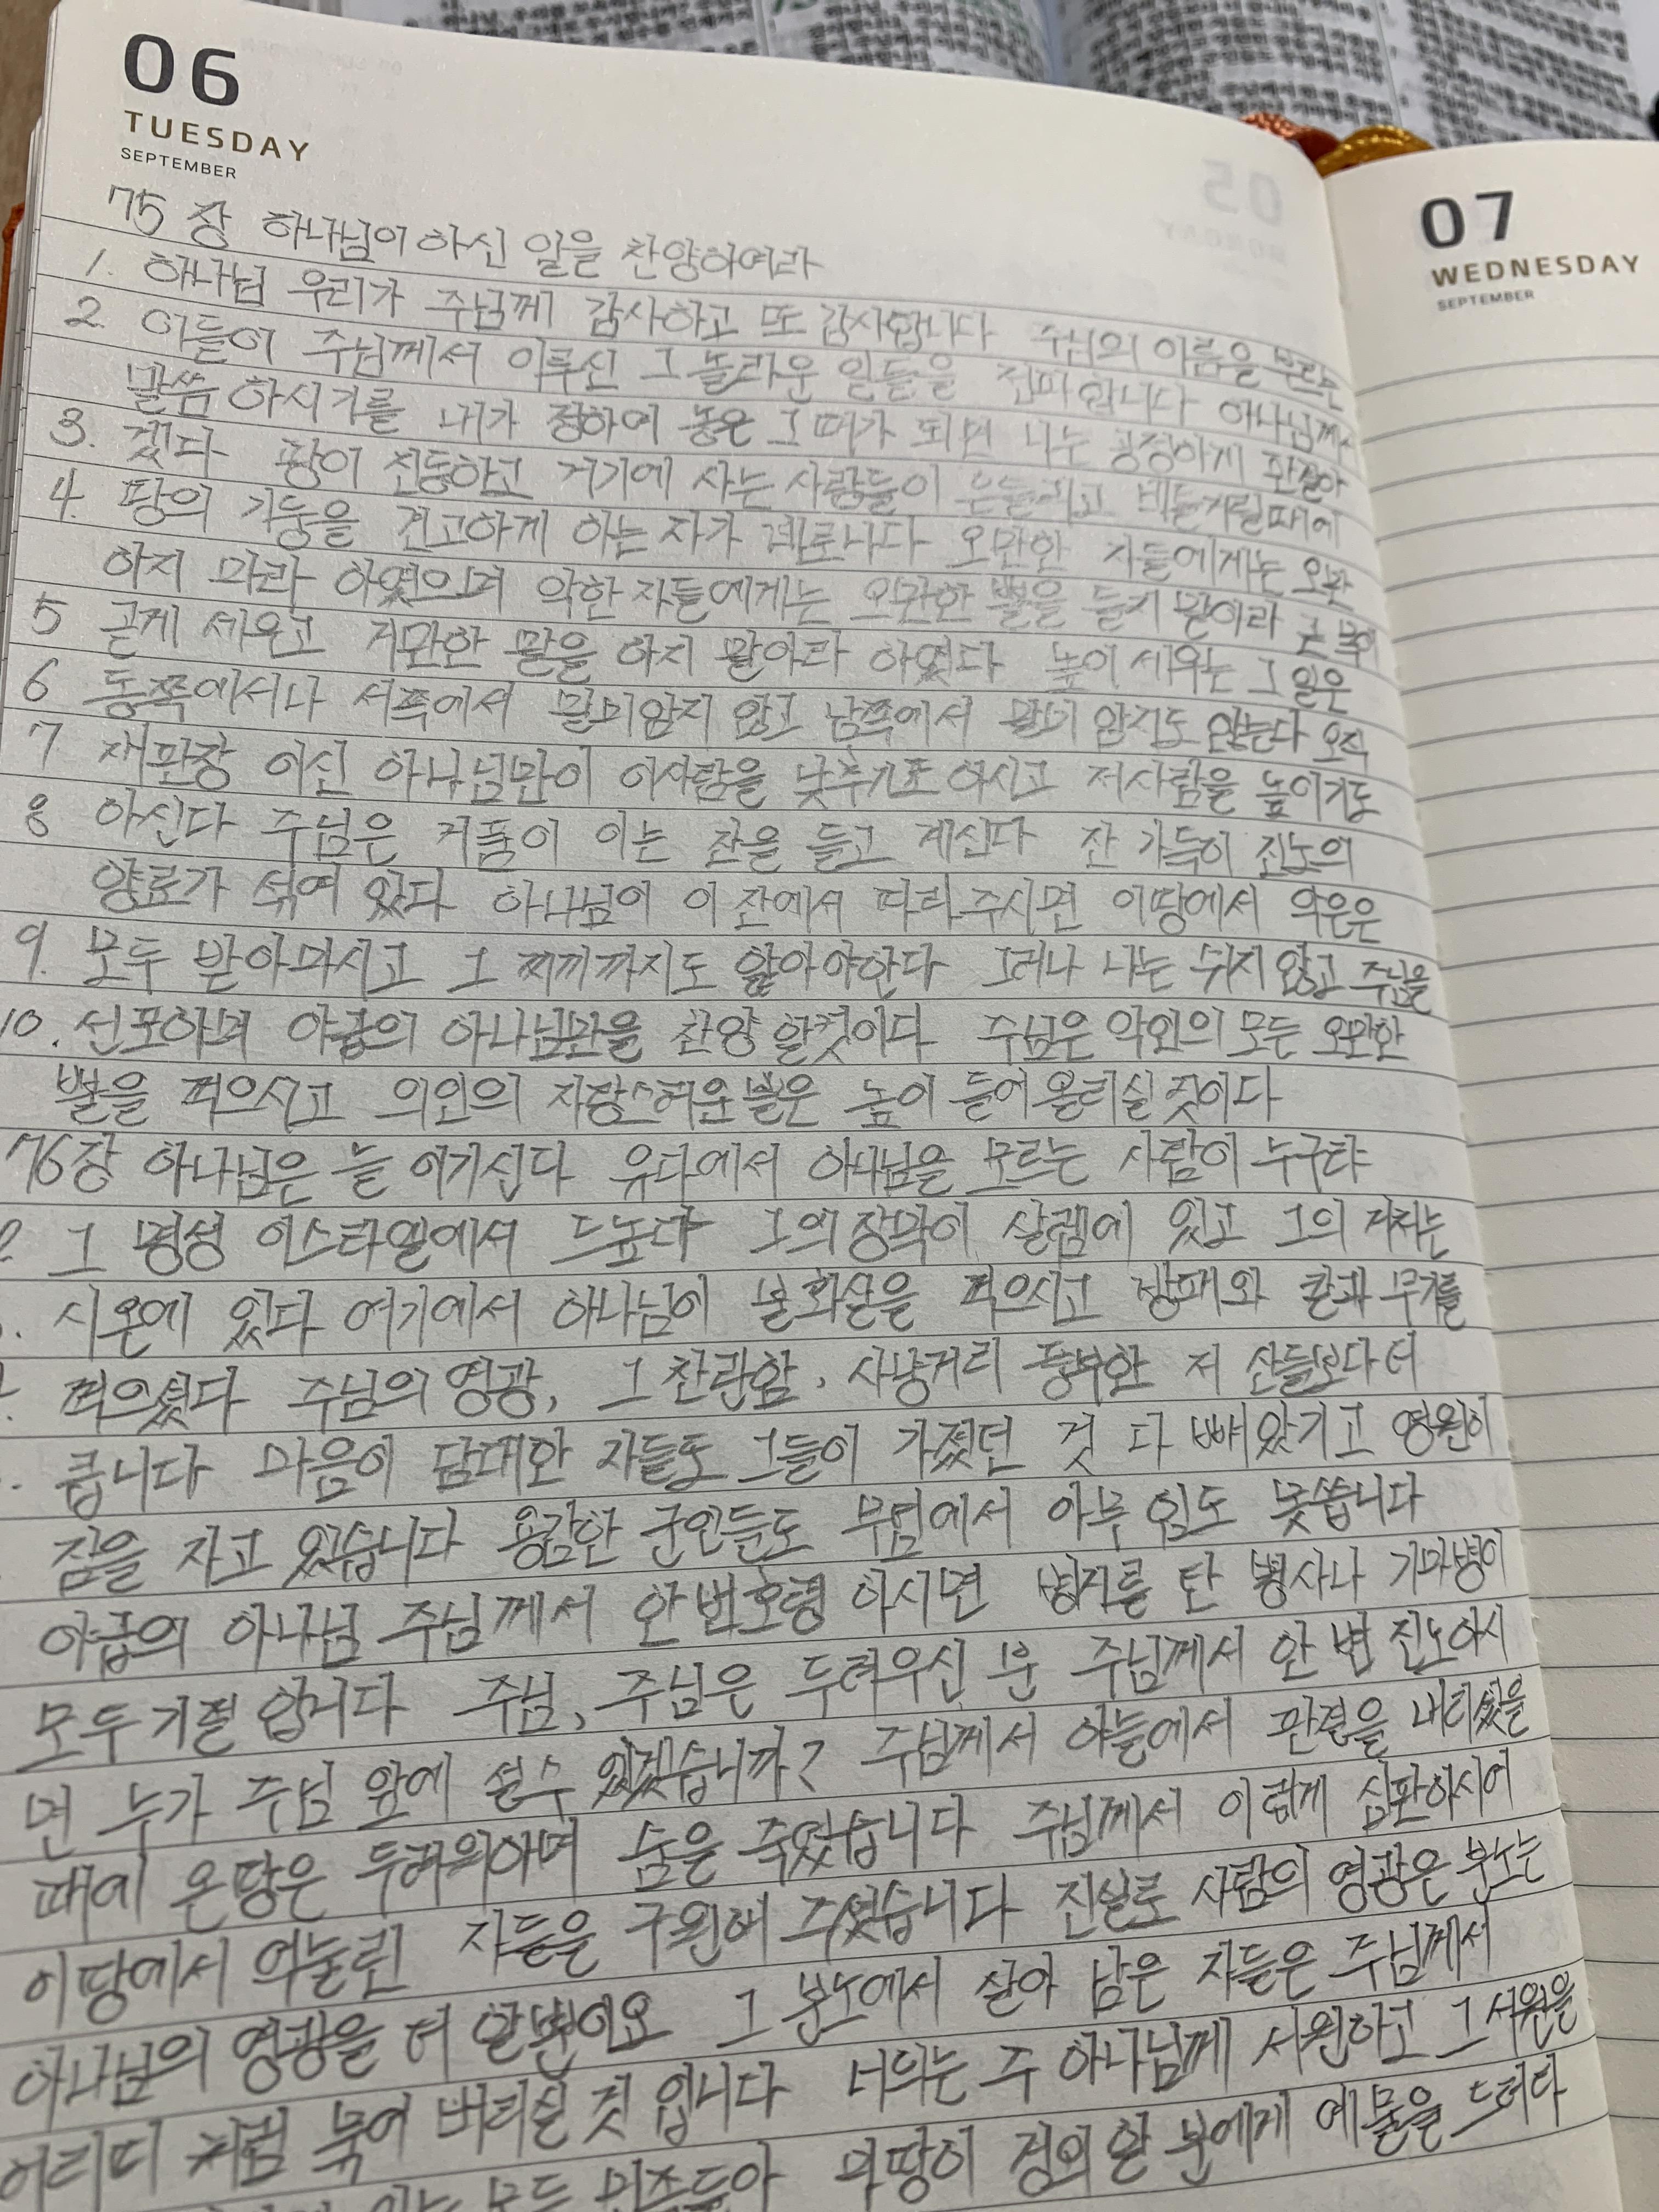 06
TUESDAY
SEPTEMBER
07
WEDNESDAY
SEPTEMBER
75 장 하나님이 하신 일을 찬양하여라
1. 하나님 우리가 주님께 감사하고 또 감사합니다 주님의 이름을 부르는
2. 이들이 주님께서 이루신 그 놀라운 일들을 전파합니다 하나님께서
말씀 하시기를 내가 정하여 놓은 그 때가 되면 나는 공정하게 판결하
3. 겠다 땅이 진동하고 거기에 사는 사람들이 흔들리고 비틀거릴때에
4. 땅의 기둥을 견고하게 하는 자가 바로나다 오만한 자들에게는 오만
하지 마라 하였으며 악한 자들에게는 오만한 뿔을 들지 말아라
5 곧게 세우고 거만한 말을 하지 말아라 하였다 높이 세우는 그 일은
6 동쪽에서나 서쪽에서 말미암지 않고 남쪽에서 말미 암지도 않는다 오직
7 재판장 이신 하나님만이 이사람을 낮추기도 하시고 저사람을 높이기도
8 하신다 주님은 거품이 이는 잔을 들고 계신다 잔 가득히 진노의
향료가 섞여 있다 하나님이 이 잔에서 따라주시면 이땅에서 악은은
9. 모두 받아마시고 그 찌끼까지도 핥아야한다 그러나 나는 쉬지 않고 주님을
10. 선포하며 야곱의 하나님만을 찬양 할것이다 주님은 악인의 모든 오만한
뿔을 꺽으시고 의인의 자랑스러운 뿔은 높이 들어 올리실 것이다
76장 하나님은 늘 이기신다 유다에서 하나님을 모르는 사람이 누구랴
2. 그 명성 이스라엘에서 드높다 그의 장막이 살렘에 있고 그의 거처는
시온에 있다 여기에서 하나님이 불화살을 꺽으시고 방패와 칼과 무기를
꺽으셨다 주님의 영광, 그 찬란함, 사냥거리 풍부한 저 산들보다 더
큽니다 마음이 담대한 자들도 그들이 가졌던 것 다 빼앗기고 영원히
잠을 자고 있습니다 용감한 군인들도 무덤에서 아무 힘도 못씁니다
야곱의 하나님 주님께서 한 번 호령 하시면 병거를 탄 병사나 기마병이
모두 기절 합니다 주님, 주님은 두려우신 분 주님께서 한 번 진노하시
면 누가 주님 앞에 설수 있겠습니까? 주님께서 하늘에서 판결을 내리셨을
때에 온 땅은 두려워하며 숨을 죽였습니다 주님께서 이렇게 심판하시어
이 땅에서 억눌린 자들을 구원해 주셨습니다 진실로 사람의 영광은 분노는
하나님의 영광을 더 할뿐이요 그 분노에서 살아 남은 자들은 주님께서
허리띠 처럼 묶어 버리실 것 입니다 너희는 주 하나님께 서원하고 그 서원을
모든 민족들아 위땅이 경외 할 분에게 예물을 드려라